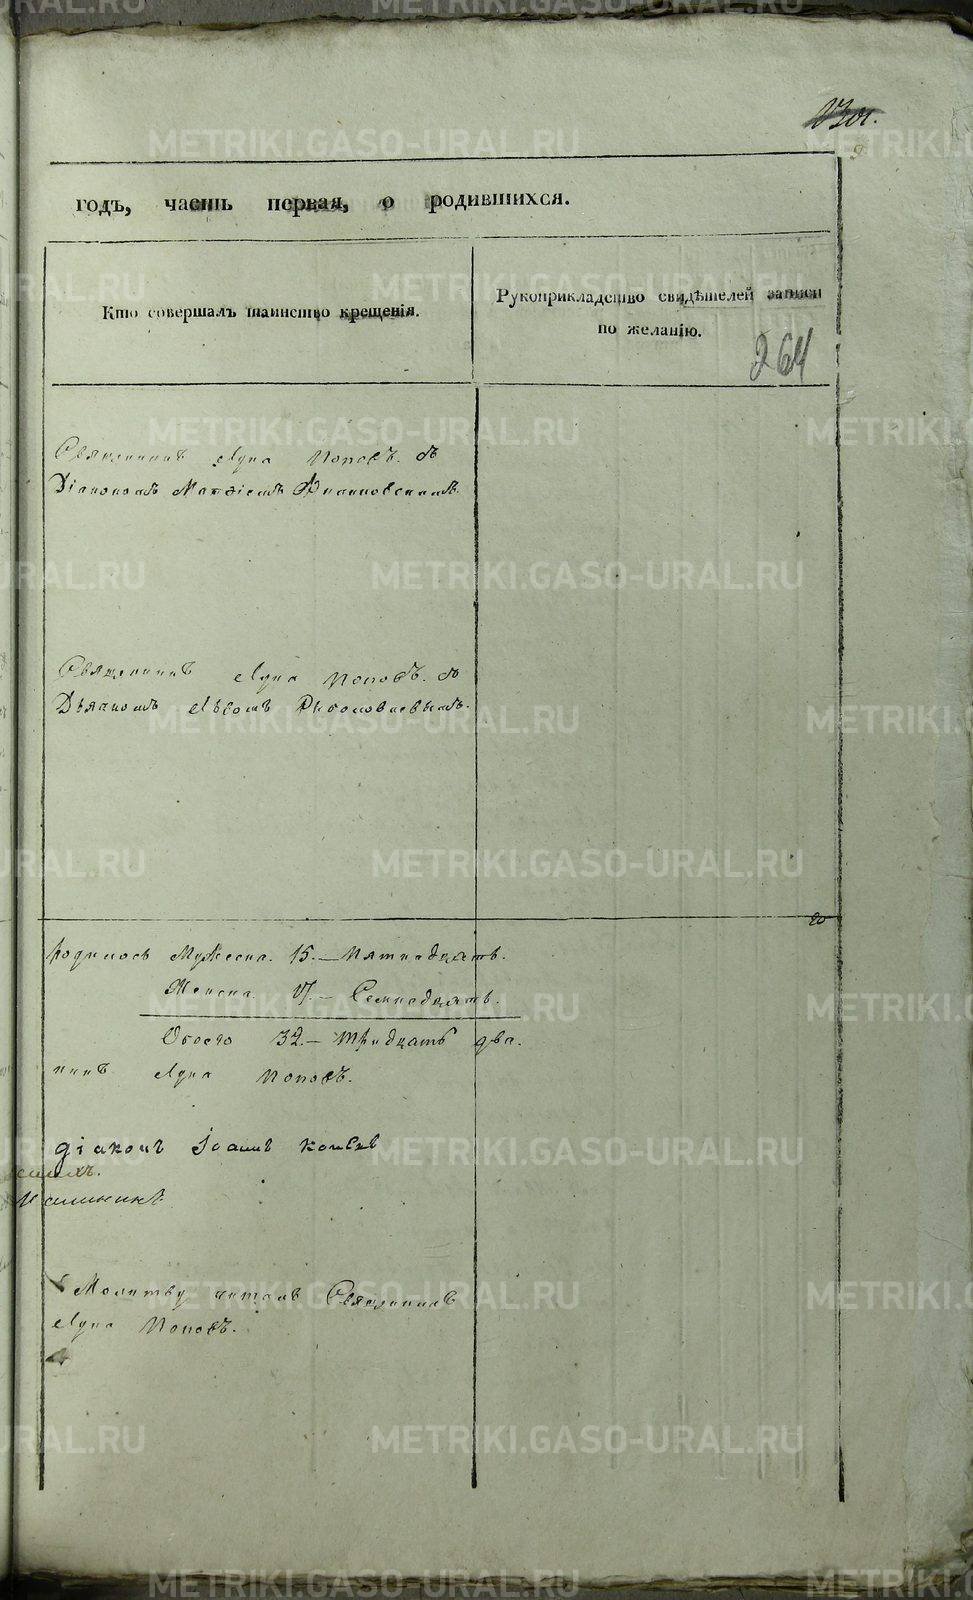 METRIKI.GASO-URAL.RU
годъ, часть первая, о родившихся.
Кто совершалъ таинство крещенія.
Рукоприкладство свидѣтелей записи
по желанію.
264
Священникъ Лука Поповъ. съ
Діакономъ Матѳіемъ
Священникъ Лука Поповъ. съ
Дьячкомъ
20
Родилось Мужеска. 15. – Пятнадцать.
Женска. 17. – Семнадцать.
Обоего 32. – Тридцать два.
никъ Лука Поповъ.
діаконъ Іоаннъ
Молитву читалъ Священникъ
Лука Поповъ.